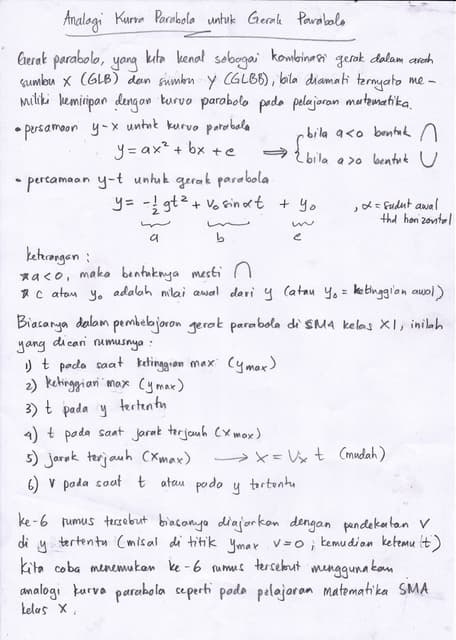 Analogi Kurva Parabola untuk Gerak Parabola
Gerak parabola, yang kita kenal sebagai kombinasi gerak dalam arah
sumbu X (GLB) dan sumbu Y (GLBB), bila diamati ternyata me-
miliki kemiripan dengan kurva parabola pada pelajaran matematika.
• persamaan y-x untuk kurva parabola
bila a<0 bentuk ∩
y = ax² + bx + c ⟹ {
bila a>0 bentuk ∪
• persamaan y-t untuk gerak parabola
y = -½ gt² + v₀ sin α t + y₀ , α = sudut awal
thd horizontal
a b c
keterangan :
* a<0, maka bentuknya mesti ∩
* c atau y₀ adalah nilai awal dari y (atau y₀ = ketinggian awal)
Biasanya dalam pembelajaran gerak parabola di SMA kelas XI, inilah
yang dicari rumusnya :
1) t pada saat ketinggian max (ymax)
2) ketinggian max (ymax)
3) t pada y tertentu
4) t pada saat jarak terjauh (xmax)
5) jarak terjauh (xmax) ⟶ x = Vx t (mudah)
6) V pada saat t atau pada y tertentu
ke-6 rumus tersebut biasanya diajarkan dengan pendekatan V
di y tertentu (misal di titik ymax v=0, kemudian ketemu t)
Kita coba menemukan ke-6 rumus tersebut menggunakan
analogi kurva parabola seperti pada pelajaran matematika SMA
kelas X.